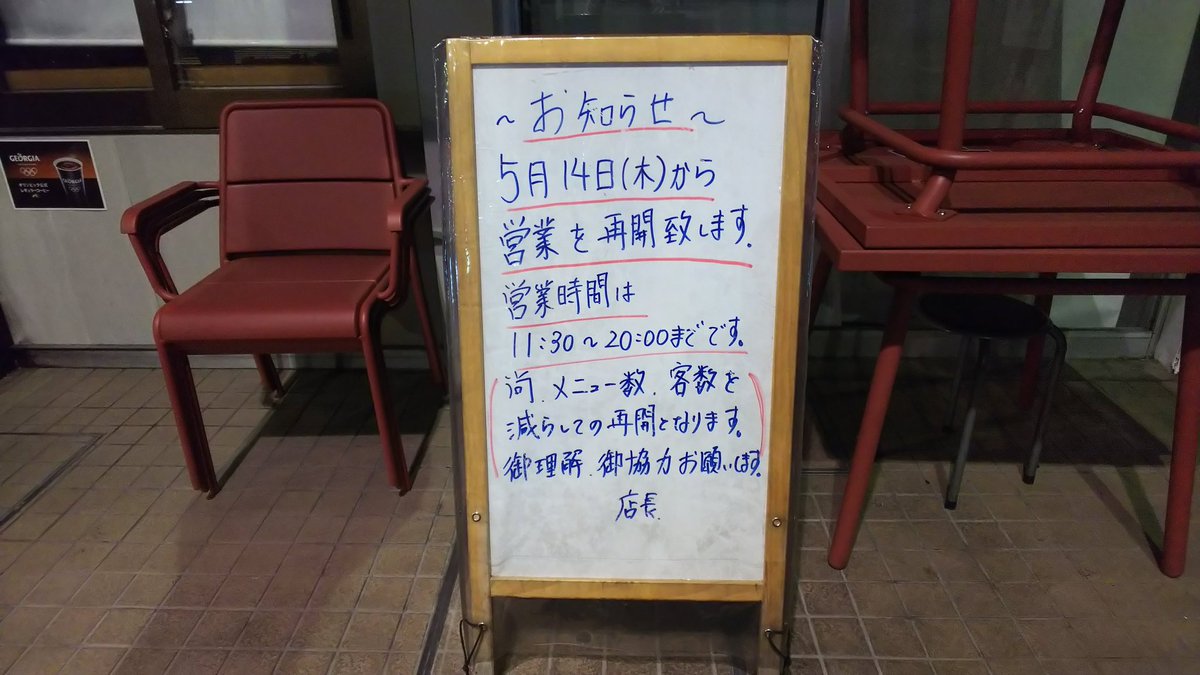 ～お知らせ～
5月14日(木)から
営業を再開致します。
営業時間は
11:30～20:00までです。
尚、メニュー数、客数を
減らしての再開となります。
御理解、御協力お願いします。
店長
GEORGIA
オリンピック公式
レギュラーコーヒー